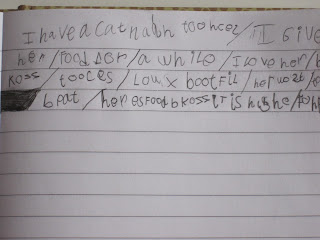 I have a cat nubn too hcez / I Give
her / food DOr / a while / I Love her / b
Koss / tooces / Lou x bootFiL / her wozt /
b fat / her es Food b Koss iT is